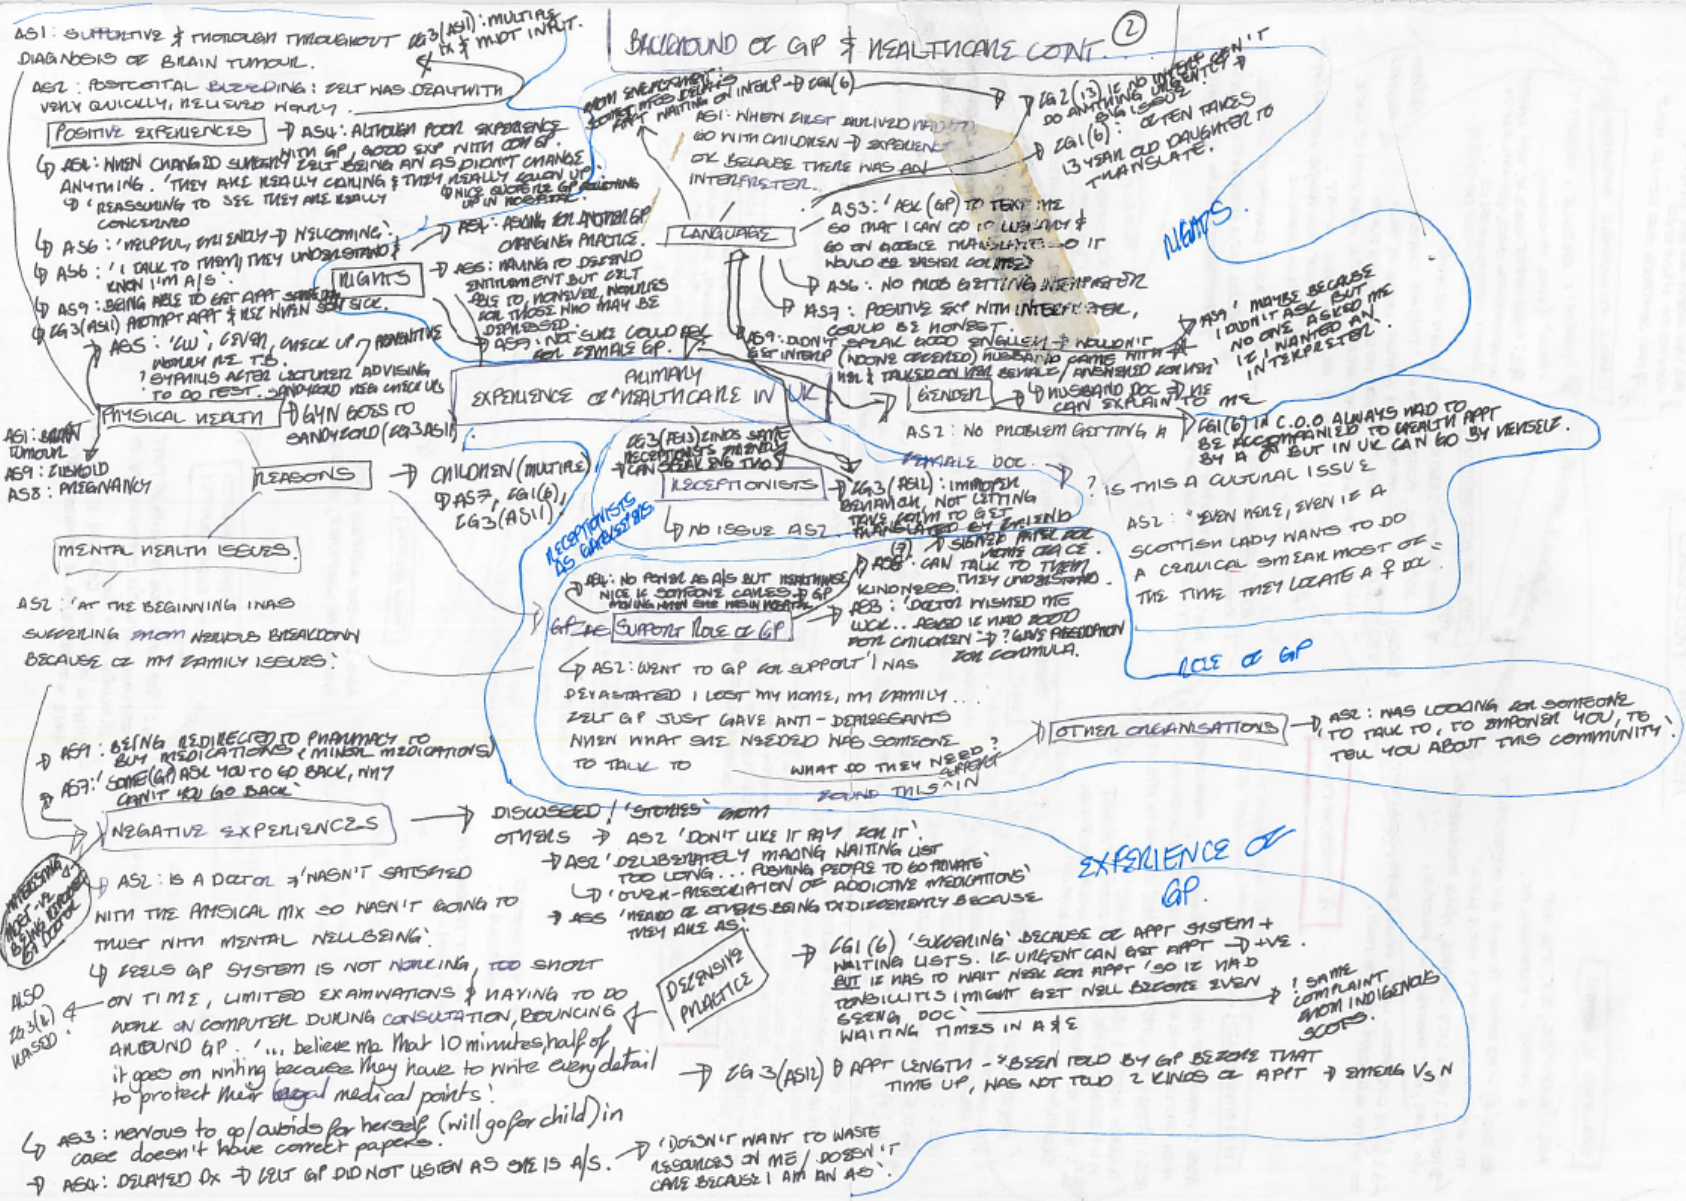 BACKGROUND OF GP & HEALTHCARE CONT... 2
AS1: SUPPORTIVE & THOROUGH THROUGHOUT
DIAGNOSIS OF BRAIN TUMOUR.
FG3(AS11): MULTIPLE
TX & MDT INPUT.
AS2: POSTCOITAL BLEEDING: FELT WAS DEALT WITH
VERY QUICKLY, RELIEVED WORRY.
POSITIVE EXPERIENCES
AS4: ALTHOUGH POOR EXPERIENCE
WITH GP, GOOD EXP WITH GP.
AS4: WHEN CHANGED SURGERY FELT BEING AN AS DIDN'T CHANGE
ANYTHING. 'THEY ARE REALLY CARING & THEY REALLY FOLLOW UP'.
'REASSURING TO SEE THEY ARE REALLY
CONCERNED
UP IN HOSPITAL.
AS6: 'HELPFUL, FRIENDLY → WELCOMING'.
AS6: 'I TALK TO THEM, THEY UNDERSTAND &
KNOW I'M A/S'.
AS9: BEING ABLE TO GET APPT WHEN SON SICK.
FG3(AS11) PROMPT APPT &
AS5: FEVER, CHECK UP, PREVENTIVE
WORRY RE TB.
? SYPHILIS AFTER LECTURER ADVISING
TO DO TEST. SANDYFORD REG CHECK UPS
PHYSICAL HEALTH
GYN GOES TO
SANDYFORD (FG3 AS11)
AS1: BRAIN
TUMOUR
AS9:
AS8: PREGNANCY
RIGHTS
AS4: ASKING FOR ANOTHER GP
CHANGING PRACTICE.
AS5: HAVING TO DEFEND
ENTITLEMENT BUT FELT
ABLE TO, HOWEVER, WORRIES
FOR THOSE WHO MAY BE
DEPRESSED.
AS9: NOT SURE COULD ASK
FOR FEMALE GP.
FROM
APPT WAITING ON INTERP → FG1(6)
AS1: WHEN FIRST ARRIVED HAD TO
GO WITH CHILDREN → EXPERIENCE
OK BECAUSE THERE WAS AN
INTERPRETER.
FG2(13) IF NO INTERP CAN'T
DO ANYTHING URGENTLY →
BIG ISSUE.
FG1(6): OFTEN TAKES
13 YEAR OLD DAUGHTER TO
TRANSLATE.
LANGUAGE
AS3: 'ASK (GP) TO TEXT ME
SO THAT I CAN GO TO LIBRARY &
GO ON GOOGLE TRANSLATE SO IT
WOULD BE EASIER FOR ME'
AS6: NO PROB GETTING INTERPRETER
AS7: POSITIVE EXP WITH INTERPRETER,
COULD BE HONEST.
AS9: DIDN'T SPEAK GOOD ENGLISH → WOULDN'T
GET INTERP (NO ONE OFFERED) HUSBAND CAME WITH
HER & TALKED ON HER BEHALF / ANSWERED FOR HER'
AS9 'MAYBE BECAUSE
I DIDN'T ASK BUT
NO ONE ASKED ME
IF I WANTED AN
INTERPRETER'.
RIGHTS.
PRIMARY
EXPERIENCE OF HEALTHCARE IN UK
GENDER
HUSBAND DOC → HE
CAN EXPLAIN TO ME
AS2: NO PROBLEM GETTING A
FEMALE DOC.
FG1(6) IN C.O.O ALWAYS HAD TO
BE ACCOMPANIED TO HEALTH APPT
BY A ♂ BUT IN UK CAN GO BY HERSELF.
? IS THIS A CULTURAL ISSUE
AS2: 'EVEN HERE, EVEN IF A
SCOTTISH LADY WANTS TO DO
A CERVICAL SMEAR MOST OF
THE TIME THEY LOCATE A ♀ DOC'
REASONS
CHILDREN (MULTIPLE)
AS7, FG1(6),
FG3(AS11).
FG3(AS13) FINDS SAME
RECEPTIONISTS FRIENDLY
CAN SPEAK ENG THO
RECEPTIONISTS
NO ISSUE AS2.
FG3(AS12): IMPROPER
BEHAVIOUR, NOT LETTING
TAKE FORM TO GET
TRANSLATED BY FRIEND
RECEPTIONISTS
AS
GATEKEEPERS.
MENTAL HEALTH ISSUES.
AS2: 'AT THE BEGINNING I WAS
SUFFERING FROM NERVOUS BREAKDOWN
BECAUSE OF MY FAMILY ISSUES'.
AS4: NO POWER AS A/S BUT
NICE IF SOMEONE CARES → GP
SIGNED PAPER FOR
HOME OFFICE.
CAN TALK TO THEM
THEY UNDERSTAND.
KINDNESS.
SUPPORT ROLE OF GP
AS8: 'DOCTOR WISHED ME
LUCK.. ASKED IF HAD FOOD
FOR CHILDREN → ? GAVE PRESCRIPTION
FOR FORMULA.
AS2: WENT TO GP FOR SUPPORT 'I WAS
DEVASTATED I LOST MY HOME, MY FAMILY...
FELT GP JUST GAVE ANTI-DEPRESSANTS
WHEN WHAT SHE NEEDED WAS SOMEONE
TO TALK TO
WHAT DO THEY NEED?
FOUND THIS SUPPORT IN
ROLE OF GP
OTHER ORGANISATIONS
AS2: WAS LOOKING FOR SOMEONE
TO TALK TO, TO EMPOWER YOU, TO
TELL YOU ABOUT THIS COMMUNITY'.
AS9: BEING REDIRECTED TO PHARMACY TO
BUY MEDICATIONS (MINOR MEDICATIONS)
AS7: 'SOME (GP) ASK YOU TO GO BACK, WHY
CAN'T YOU GO BACK'
NEGATIVE EXPERIENCES
DISCUSSED / 'STORIES' FROM
OTHERS → AS2 'DON'T LIKE IT PAY FOR IT'.
AS2 'DELIBERATELY MAKING WAITING LIST
TOO LONG... PUSHING PEOPLE TO GO PRIVATE'
'OVER-PRESCRIPTION OF ADDICTIVE MEDICATIONS'
AS5 'HEARD OF OTHERS BEING TX DIFFERENTLY BECAUSE
THEY ARE AS'.
INTERESTING
MOST -VE
BEING REPORTED
BY DOCTOR
AS2: IS A DOCTOR → 'WASN'T SATISFIED
WITH THE PHYSICAL MX SO WASN'T GOING TO
TRUST WITH MENTAL WELLBEING'.
FEELS GP SYSTEM IS NOT WORKING, TOO SHORT
ON TIME, LIMITED EXAMINATIONS & HAVING TO DO
WORK ON COMPUTER DURING CONSULTATION, BOUNCING
AROUND GP. '... believe me that 10 minutes, half of
it goes on writing because they have to write every detail
to protect their legal medical points'.
ALSO
RAISED
DEFENSIVE
PRACTICE
EXPERIENCE OF
GP.
FG1(6) 'SUFFERING' BECAUSE OF APPT SYSTEM +
WAITING LISTS. IF URGENT CAN GET APPT → +VE.
BUT IF HAS TO WAIT WEEK FOR APPT 'SO IF HAD
TONSILLITIS I MIGHT GET WELL BEFORE EVEN
SEEING DOC'
WAITING TIMES IN A & E
? SAME
COMPLAINT
FROM INDIGENOUS
SCOTS.
FG3(AS12) APPT LENGTH - BEEN TOLD BY GP BEFORE THAT
TIME UP, WAS NOT TOLD 2 KINDS OF APPT → EMERG VS N
AS3: nervous to go/avoids for herself (will go for child) in
case doesn't have correct papers.
AS4: DELAYED DX → FELT GP DID NOT LISTEN AS SHE IS A/S.
'DOESN'T WANT TO WASTE
RESOURCES ON ME / DOESN'T
CARE BECAUSE I AM AN AS'.